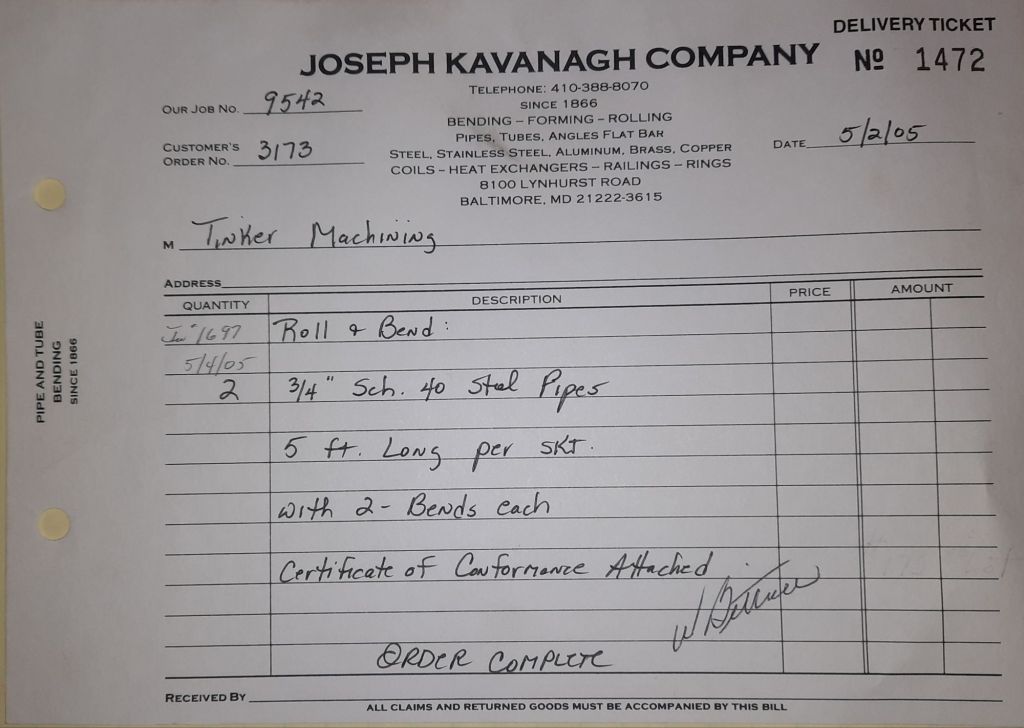 DELIVERY TICKET
JOSEPH KAVANAGH COMPANY
Nº 1472
TELEPHONE: 410-388-8070
SINCE 1866
BENDING – FORMING – ROLLING
PIPES, TUBES, ANGLES FLAT BAR
STEEL, STAINLESS STEEL, ALUMINUM, BRASS, COPPER
COILS – HEAT EXCHANGERS – RAILINGS – RINGS
8100 LYNHURST ROAD
BALTIMORE, MD 21222-3615
OUR JOB NO. 9542
CUSTOMER'S
ORDER NO. 3173
DATE 5/2/05
M Tinker Machining
ADDRESS
QUANTITY DESCRIPTION PRICE AMOUNT
1697 Roll & Bend:
5/4/05
2 3/4" Sch. 40 Steel Pipes
5 ft. Long per skt.
with 2 - Bends each
Certificate of Conformance Attached
ORDER COMPLETE
RECEIVED BY
ALL CLAIMS AND RETURNED GOODS MUST BE ACCOMPANIED BY THIS BILL
PIPE AND TUBE
BENDING
SINCE 1866